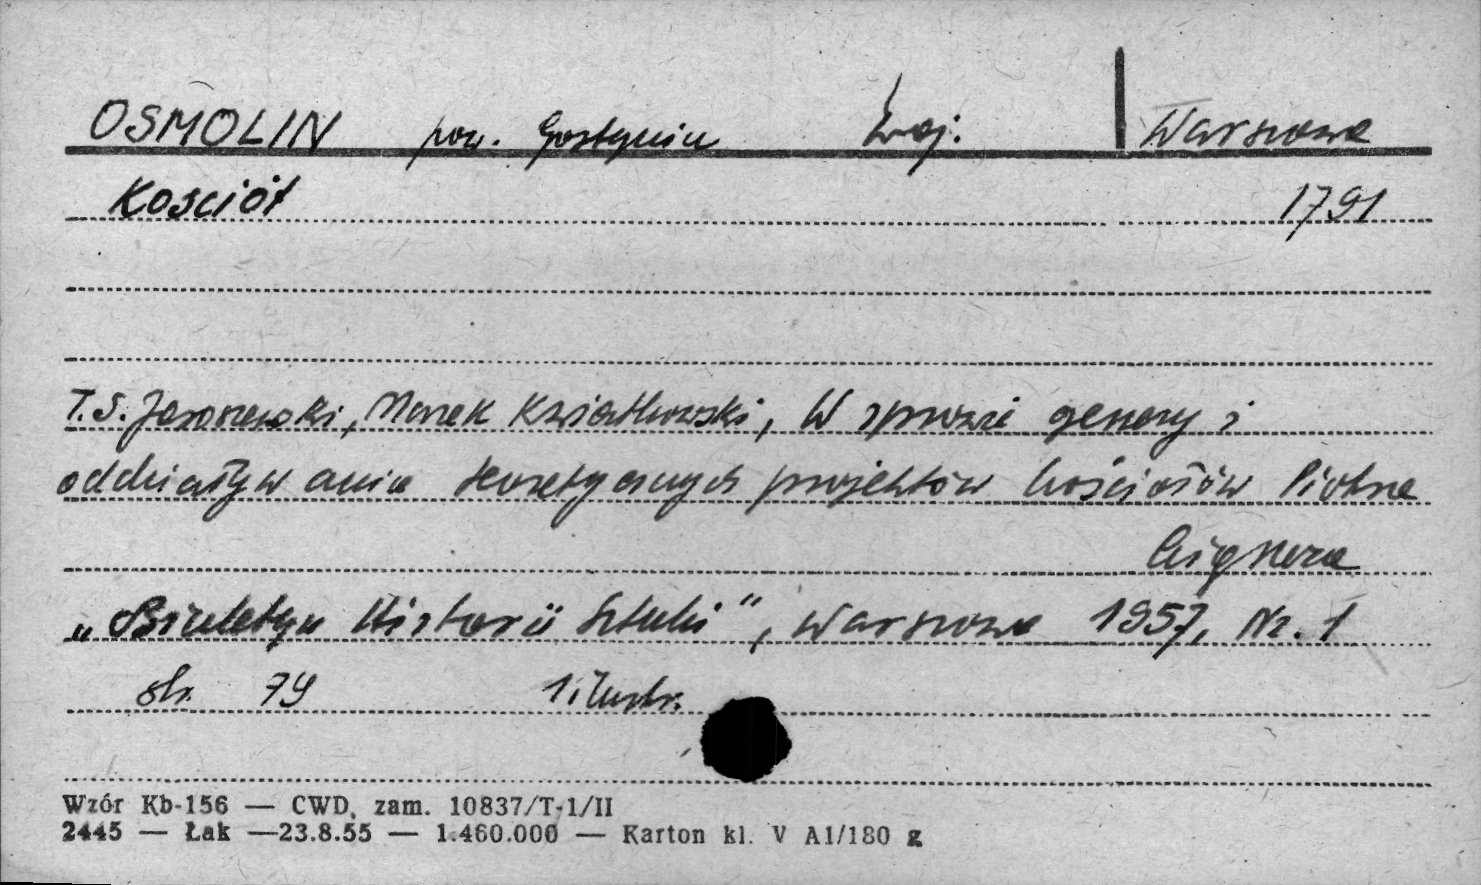 OSMOLIN pow. Gostynin woj. Warszawa
Kościół 1791
T.S. Jaroszewski, Marek Kwiatkowski, W sprawie genezy i
oddziaływania teoretycznych projektów kościołów Piotra
Aignera
„Biuletyn Historii Sztuki", Warszawa 1957, Nr. 1
str. 79 1 ilustr.
Wzór Kb-156 — CWD, zam. 10837/T-1/II
2445 — Łak —23.8.55 — 1.460.000 — Karton kl. V A1/180 g